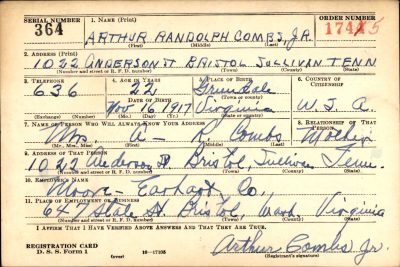 SERIAL NUMBER 1. NAME (Print) ORDER NUMBER
364 ARTHUR RANDOLPH COMBS, JR. 174
(First) (Middle) (Last)
2. ADDRESS (Print)
1022 ANDERSON ST BRISTOL SULLIVAN TENN
(Number and street or R. F. D. number) (Town) (County) (State)
3. TELEPHONE 4. AGE IN YEARS 5. PLACE OF BIRTH 6. COUNTRY OF CITIZENSHIP
636 22
DATE OF BIRTH (Town or county)
Nov 16 1917 Virginia U. S. A.
(Exchange) (Number) (Mo.) (Day) (Yr.) (State or country)
7. NAME OF PERSON WHO WILL ALWAYS KNOW YOUR ADDRESS 8. RELATIONSHIP OF THAT PERSON
Mrs. A - R. Combs Mother
(Mr., Mrs., Miss) (First) (Middle) (Last)
9. ADDRESS OF THAT PERSON
1022 Anderson St Bristol, Sullivan Tenn.
(Number and street or R. F. D. number) (Town) (County) (State)
10. EMPLOYER'S NAME
Moore - Earhart Co.
11. PLACE OF EMPLOYMENT OR BUSINESS
647 State St. Bristol, Wash Virginia
(Number and street or R. F. D. number) (Town) (County) (State)
I AFFIRM THAT I HAVE VERIFIED ABOVE ANSWERS AND THAT THEY ARE TRUE.
REGISTRATION CARD
D. S. S. Form 1 (over) 16-17105 Arthur Combs Jr.
(Registrant's signature)